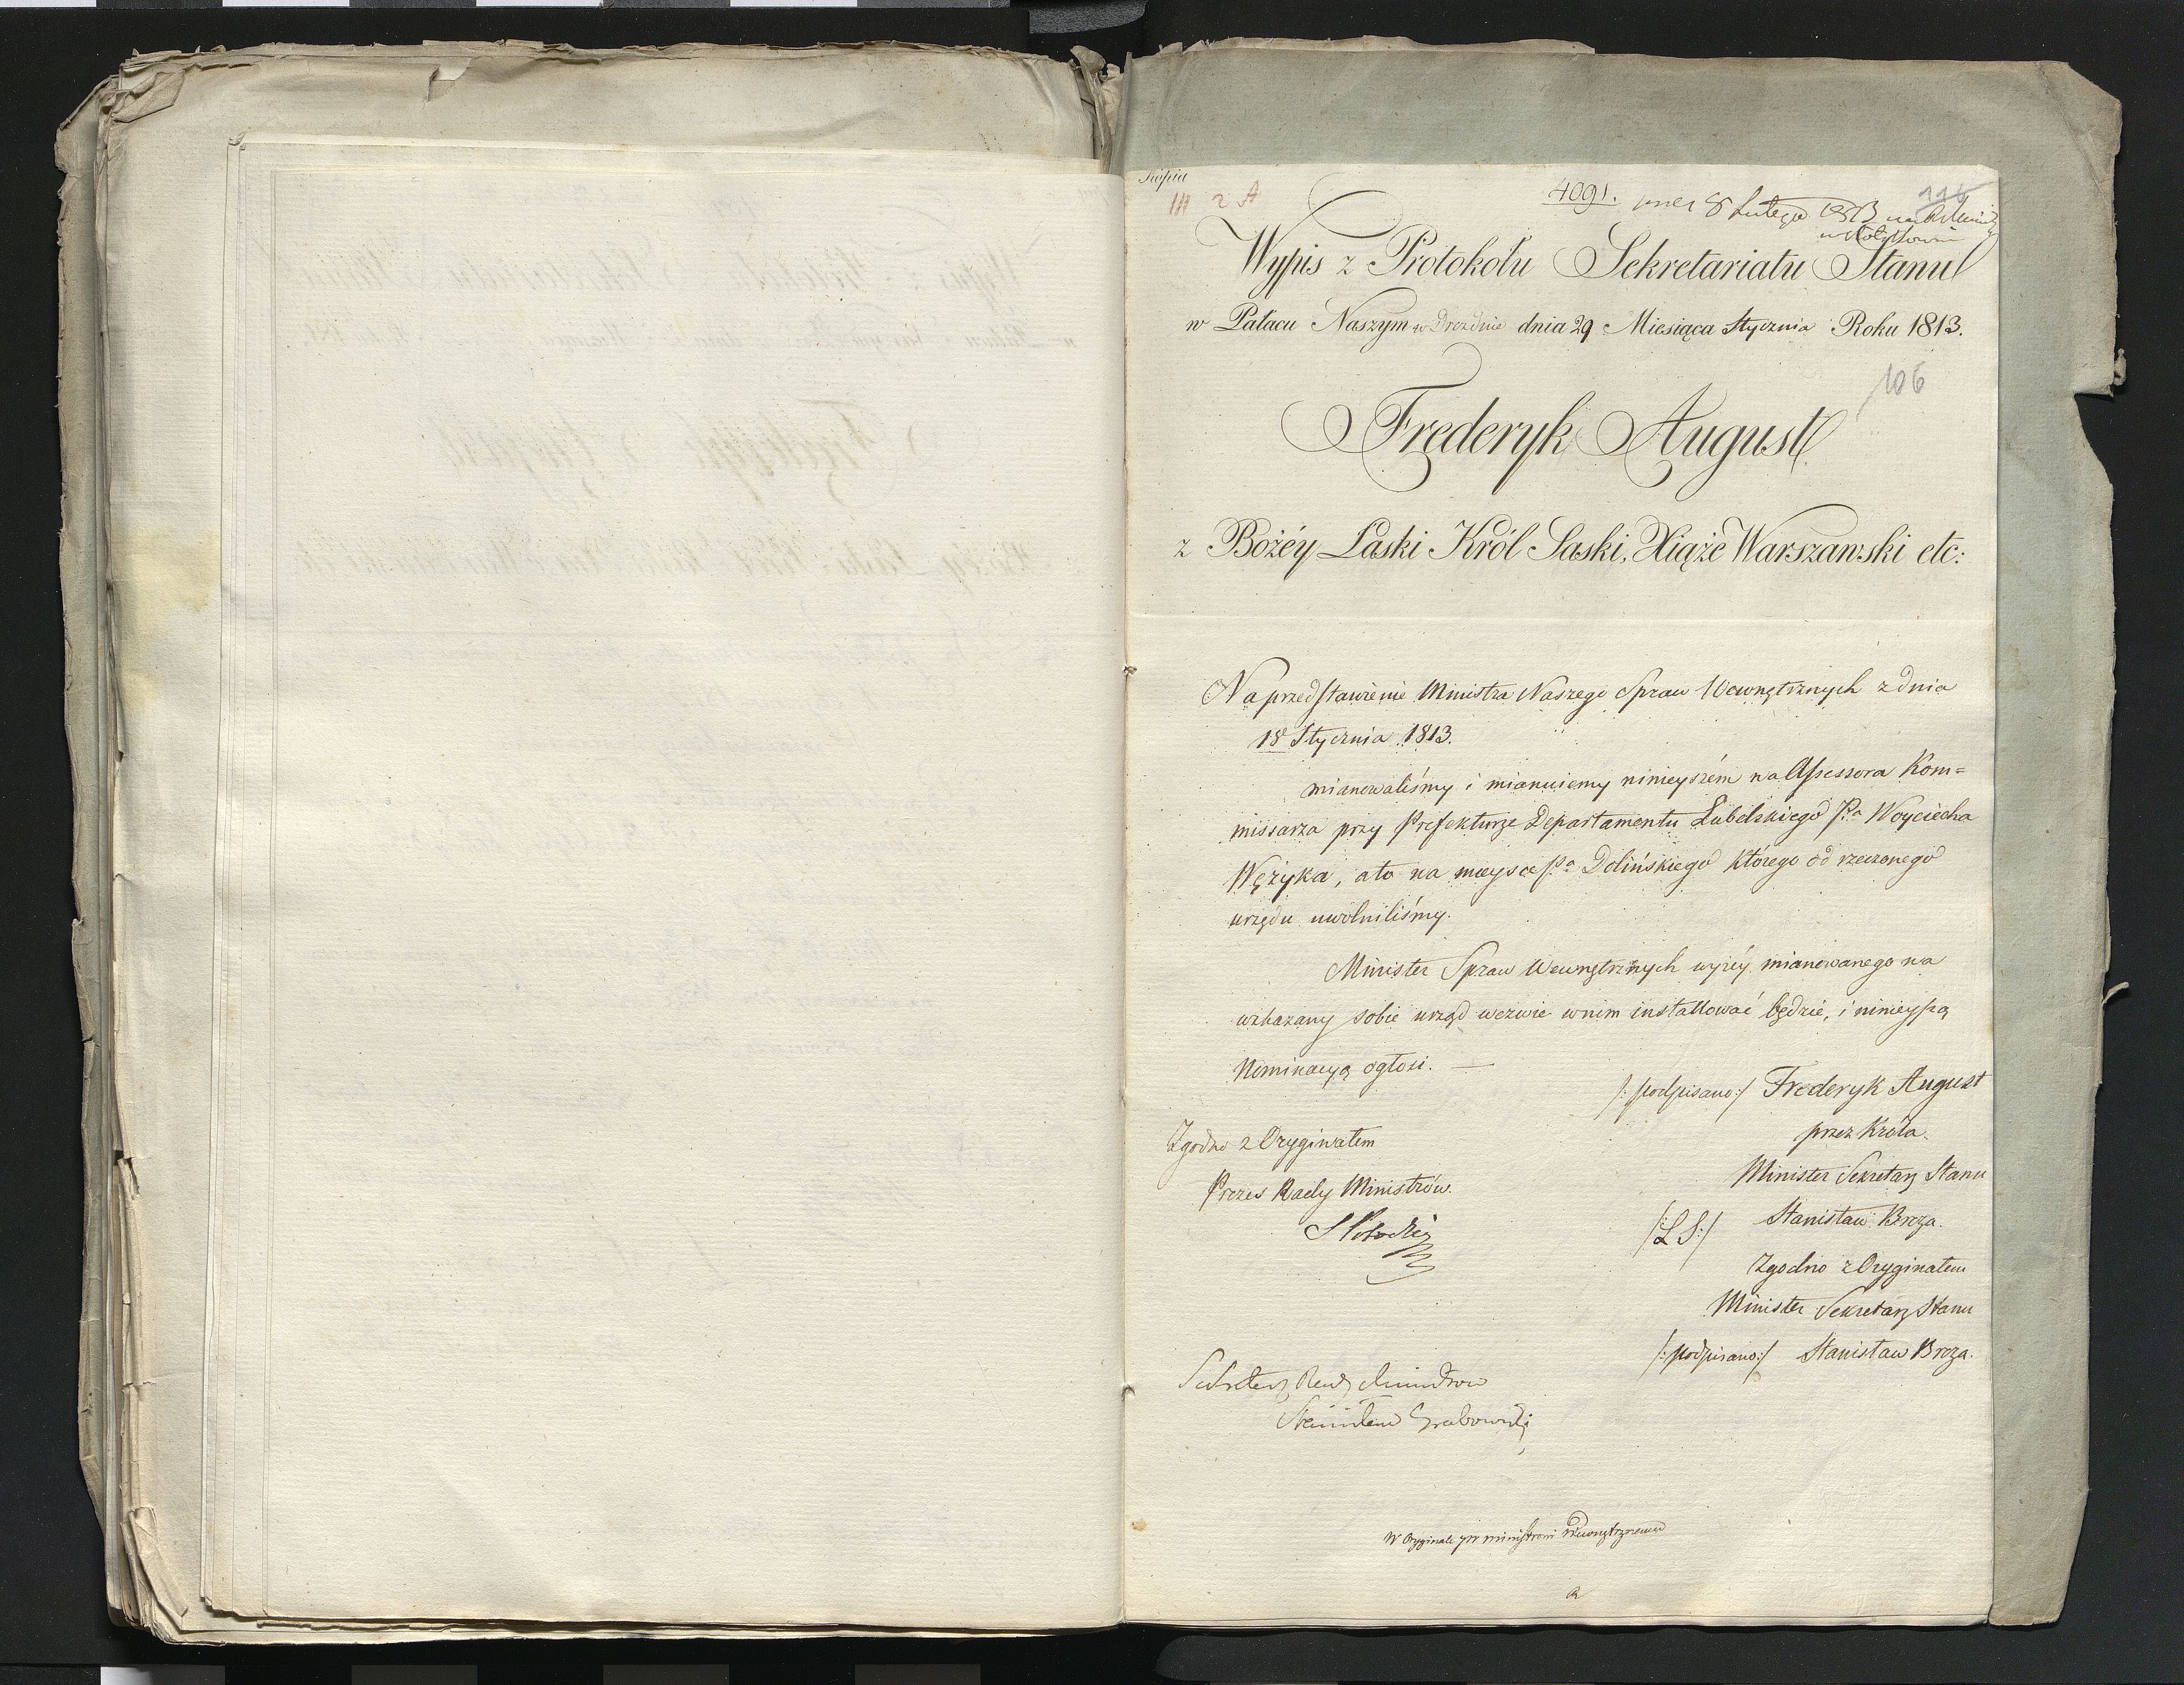 Kopia
III 2 A
4091. 8 Lutego 1813
116
Wypis z Protokołu Sekretariatu Stanu
w Pałacu Naszym w Dreźnie dnia 29 Miesiąca Stycznia Roku 1813.
106
Frederyk August
z Bożéy Łaski Król Saski, Xiąże Warszawski etc:
Na przedstawienie Ministra Naszego Spraw Wewnętrznych z dnia
18 Stycznia 1813.
mianowaliśmy i mianuiemy ninieyszém na Assessora Kom=
missarza przy Prefekturze Departamentu Lubelskiego Pa Woyciecha
Wężyka, a to na mieysce Pa Dolińskiego którego od rzeczonego
urzędu uwolniliśmy.
Minister Spraw Wewnętrznych wyżéy mianowanego na
wskazany sobie urząd wezwie w nim installować będzie, i ninieyszą
Nominacyą ogłosi. —
/: podpisano :/ Frederyk August
przez Króla.
Minister Sekretarz Stanu
/: L S :/ Stanisław Breza.
Zgodno z Oryginałem
Minister Sekretarz Stanu
/: podpisano :/ Stanisław Breza.
Zgodno z Oryginałem
Prezes Rady Ministrów.
S Potocki
Sekretarz Rady Ministrow
Stanisław Grabowski
W Oryginale JW Ministrowi Wewnętrznemu